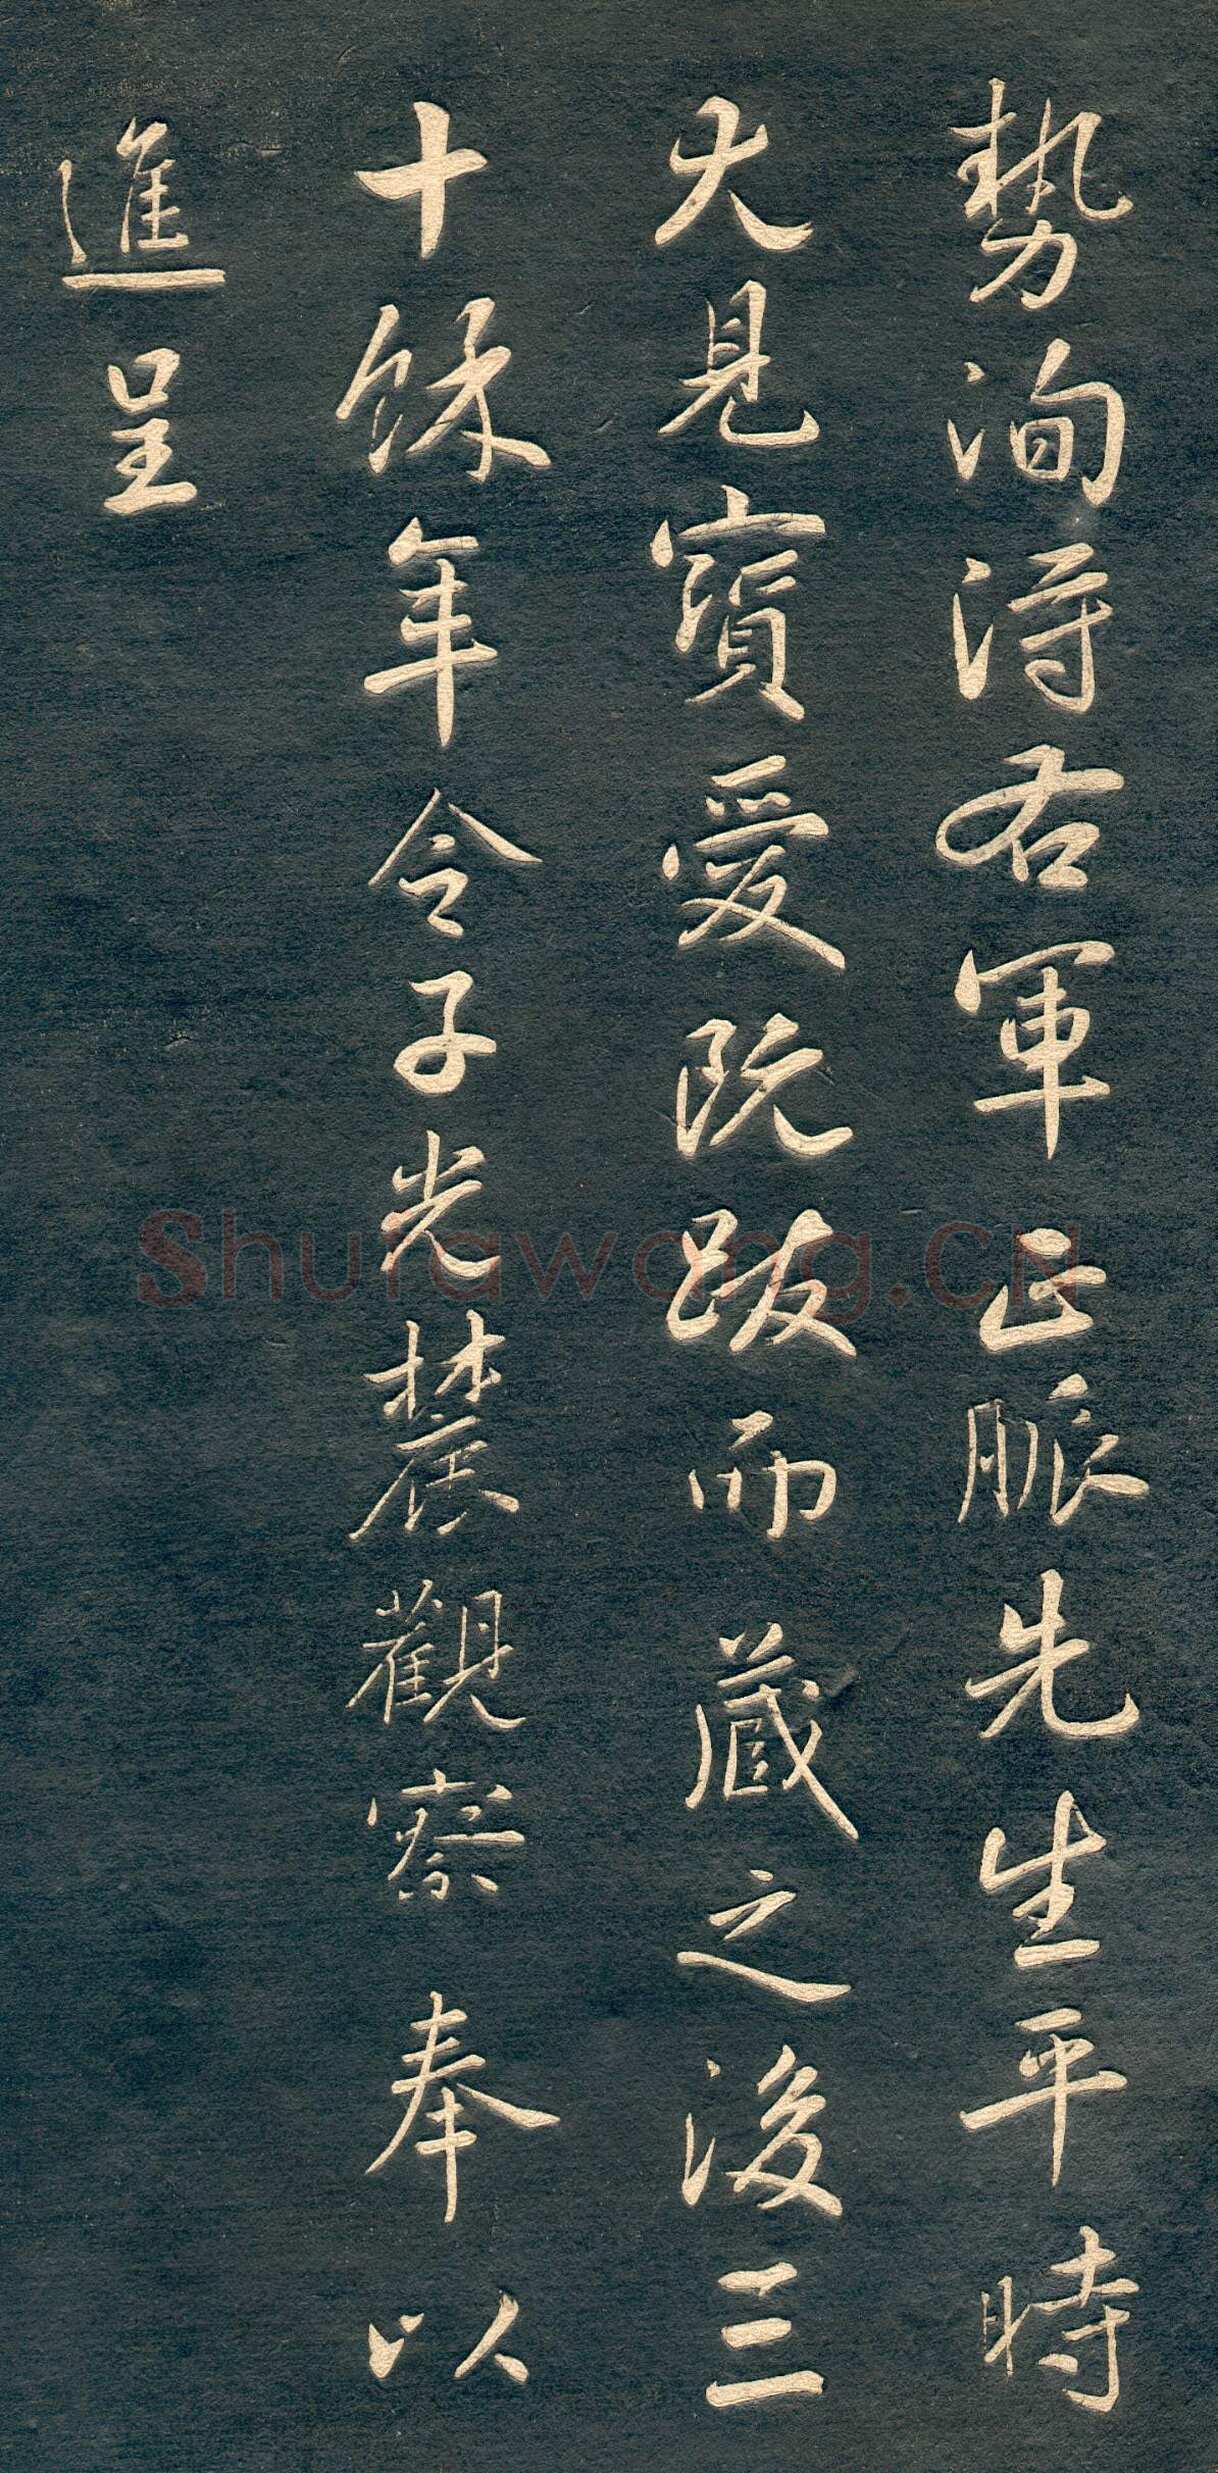 勢洵得右軍正脈先生平時
大見寶愛既跋而藏之後三
十餘年令子光農觀察奉以
進呈
Shufawang.CN